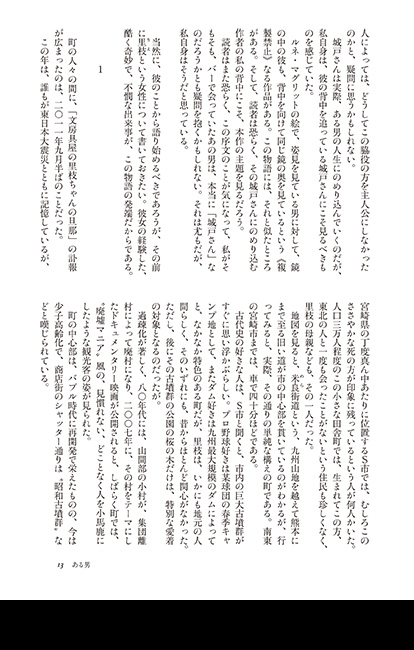 人によっては、どうしてこの脇役の方を主人公にしなかった
のかと、疑問に思うかもしれない。
城戸さんは実際、ある男の人生にのめり込んでいくのだが、
私自身は、彼の背中を追っている城戸さんにこそ見るべきも
のを感じていた。
ルネ・マグリットの絵で、姿見を見ている男に対して、鏡
の中の彼も、背中を向けて同じ鏡の奥を見ているという《複
製禁止》なる作品がある。この物語には、それと似たところ
がある。そして、読者は恐らく、その城戸さんにのめり込む
作者の私の背中にこそ、本作の主題を見るだろう。
読者はまた恐らく、この序文のことが気になって、私がそ
もそも、バーで会っていたあの男は、本当に「城戸さん」な
のだろうかとも疑問を抱くかもしれない。それは尤もだが、
私自身はそうだと思っている。
当然に、彼のことから語り始めるべきであろうが、その前
に里枝という女性について書いておきたい。彼女の経験した、
酷く奇妙で、不憫な出来事が、この物語の発端だからである。
1
町の人々の間に、「文房具屋の里枝ちゃんの旦那」の訃報
が広まったのは、二〇一一年九月半ばのことだった。
この年は、誰もが東日本大震災とともに記憶しているが、
宮崎県の丁度真ん中あたりに位置するS市では、むしろこの
ささやかな死の方が印象に残っているという人が何人かいた。
人口三万人程度のこの小さな田舎町では、生まれてこの方、
東北の人と一度も会ったことがないという住民も珍しくなく、
里枝の母親なども、その一人だった。
地図を見ると、米良街道という、九州山地を越えて熊本に
まで至る旧い道が市の中心部を貫いているのがわかるが、行
ってみると、実際、その通りの単純な構えの町である。南東
の宮崎市までは、車で四十分ほどである。
古代史の好きな人は、S市と聞くと、市内の巨大古墳群が
すぐに思い浮かぶらしい。プロ野球好きは某球団の春季キャ
ンプ地として、またダム好きは九州最大規模のダムによって
と、なかなか特色のある町だが、里枝は、いかにも地元の人
間らしく、そのいずれにも、昔からほとんど関心がなかった。
ただし、後にその古墳群の公園の桜の木だけは、特別な愛着
の対象となるのだったが。
過疎化が著しく、八〇年代には、山間部の小村が、集団離
村によって廃村になり、二〇〇七年に、その村をテーマにし
たドキュメンタリー映画が公開されると、しばらく町では、
“廃墟マニア”風の、見慣れない、どことなく人を小馬鹿に
したような観光客の姿が見られた。
町の中心部は、バブル時代に再開発で栄えたものの、今は
少子高齢化で、商店街のシャッター通りは“昭和古墳群”な
どと嘆じられている。
13 ある男